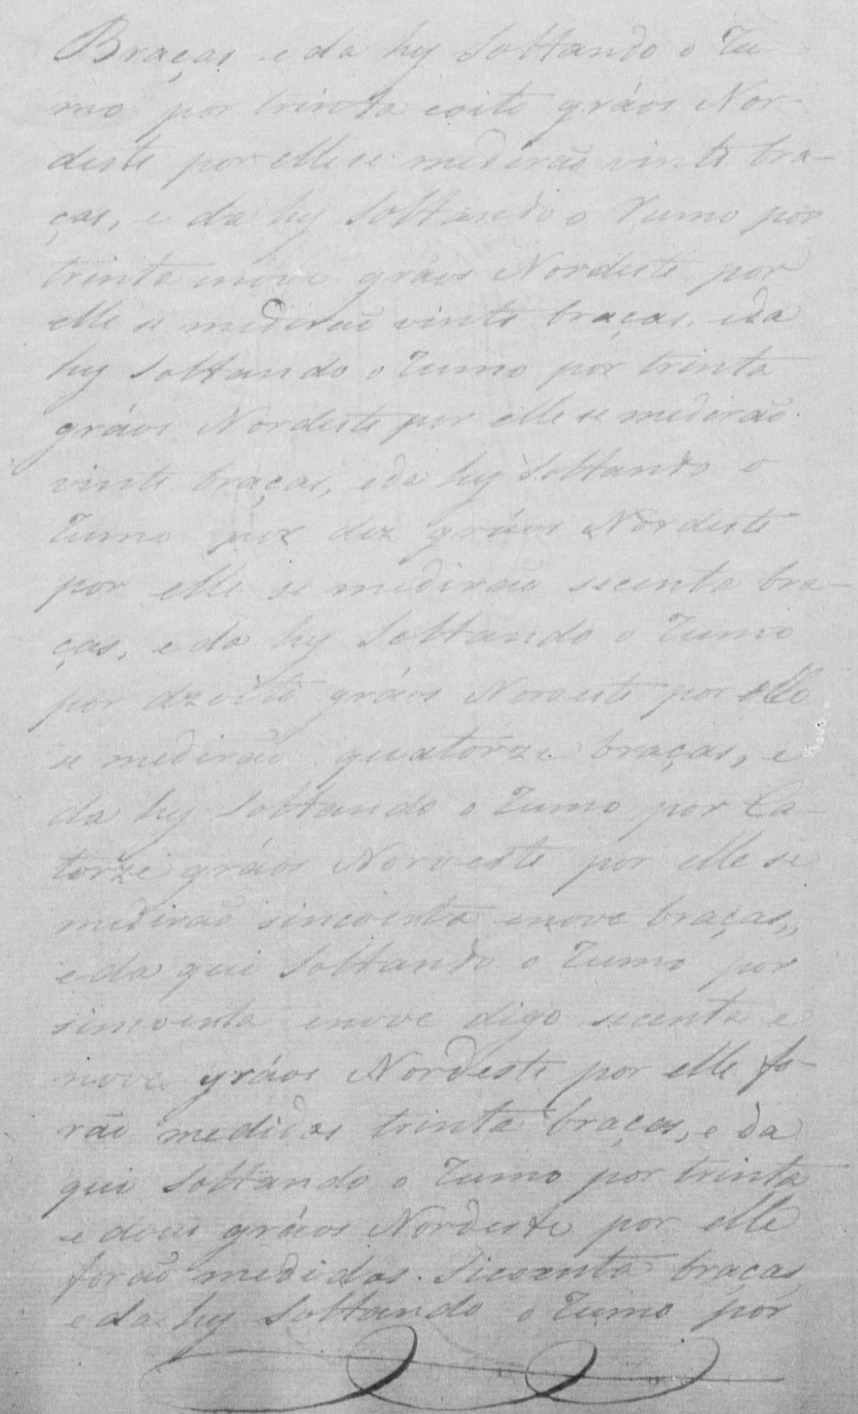 Braças e da hy Soltando o Ru-
mo por trinta eoito gráos Nor-
deste por elle se medirão vinte bra-
ças, e da hy Soltando o Rumo por
trinta enove gráos Nordeste por
elle se medirão vinte braças. eda
hy Soltando o Rumo por trinta
gráos Nordeste por elle se medirão
vinte braças, eda hy Soltando o
Rumo por dez gráos Nordeste
por elle se medirão secenta bra-
ças, e da hy Soltando o Rumo
por dzoito gráos Noroeste por elle
se medirão quatorze braças, e
da hy Soltando o Rumo por Ca-
torze gráos Noroeste por elle se
medirão sincoenta enove braças,
e da qui Soltando o Rumo por
sincoenta enove digo secenta e
nove gráos Nordeste por elle fo-
rão medidas trinta braças, e da
qui Soltando o Rumo por trinta
e dous gráos Nordeste por elle
forão medidas braças
e da hy Soltando o Rumo por